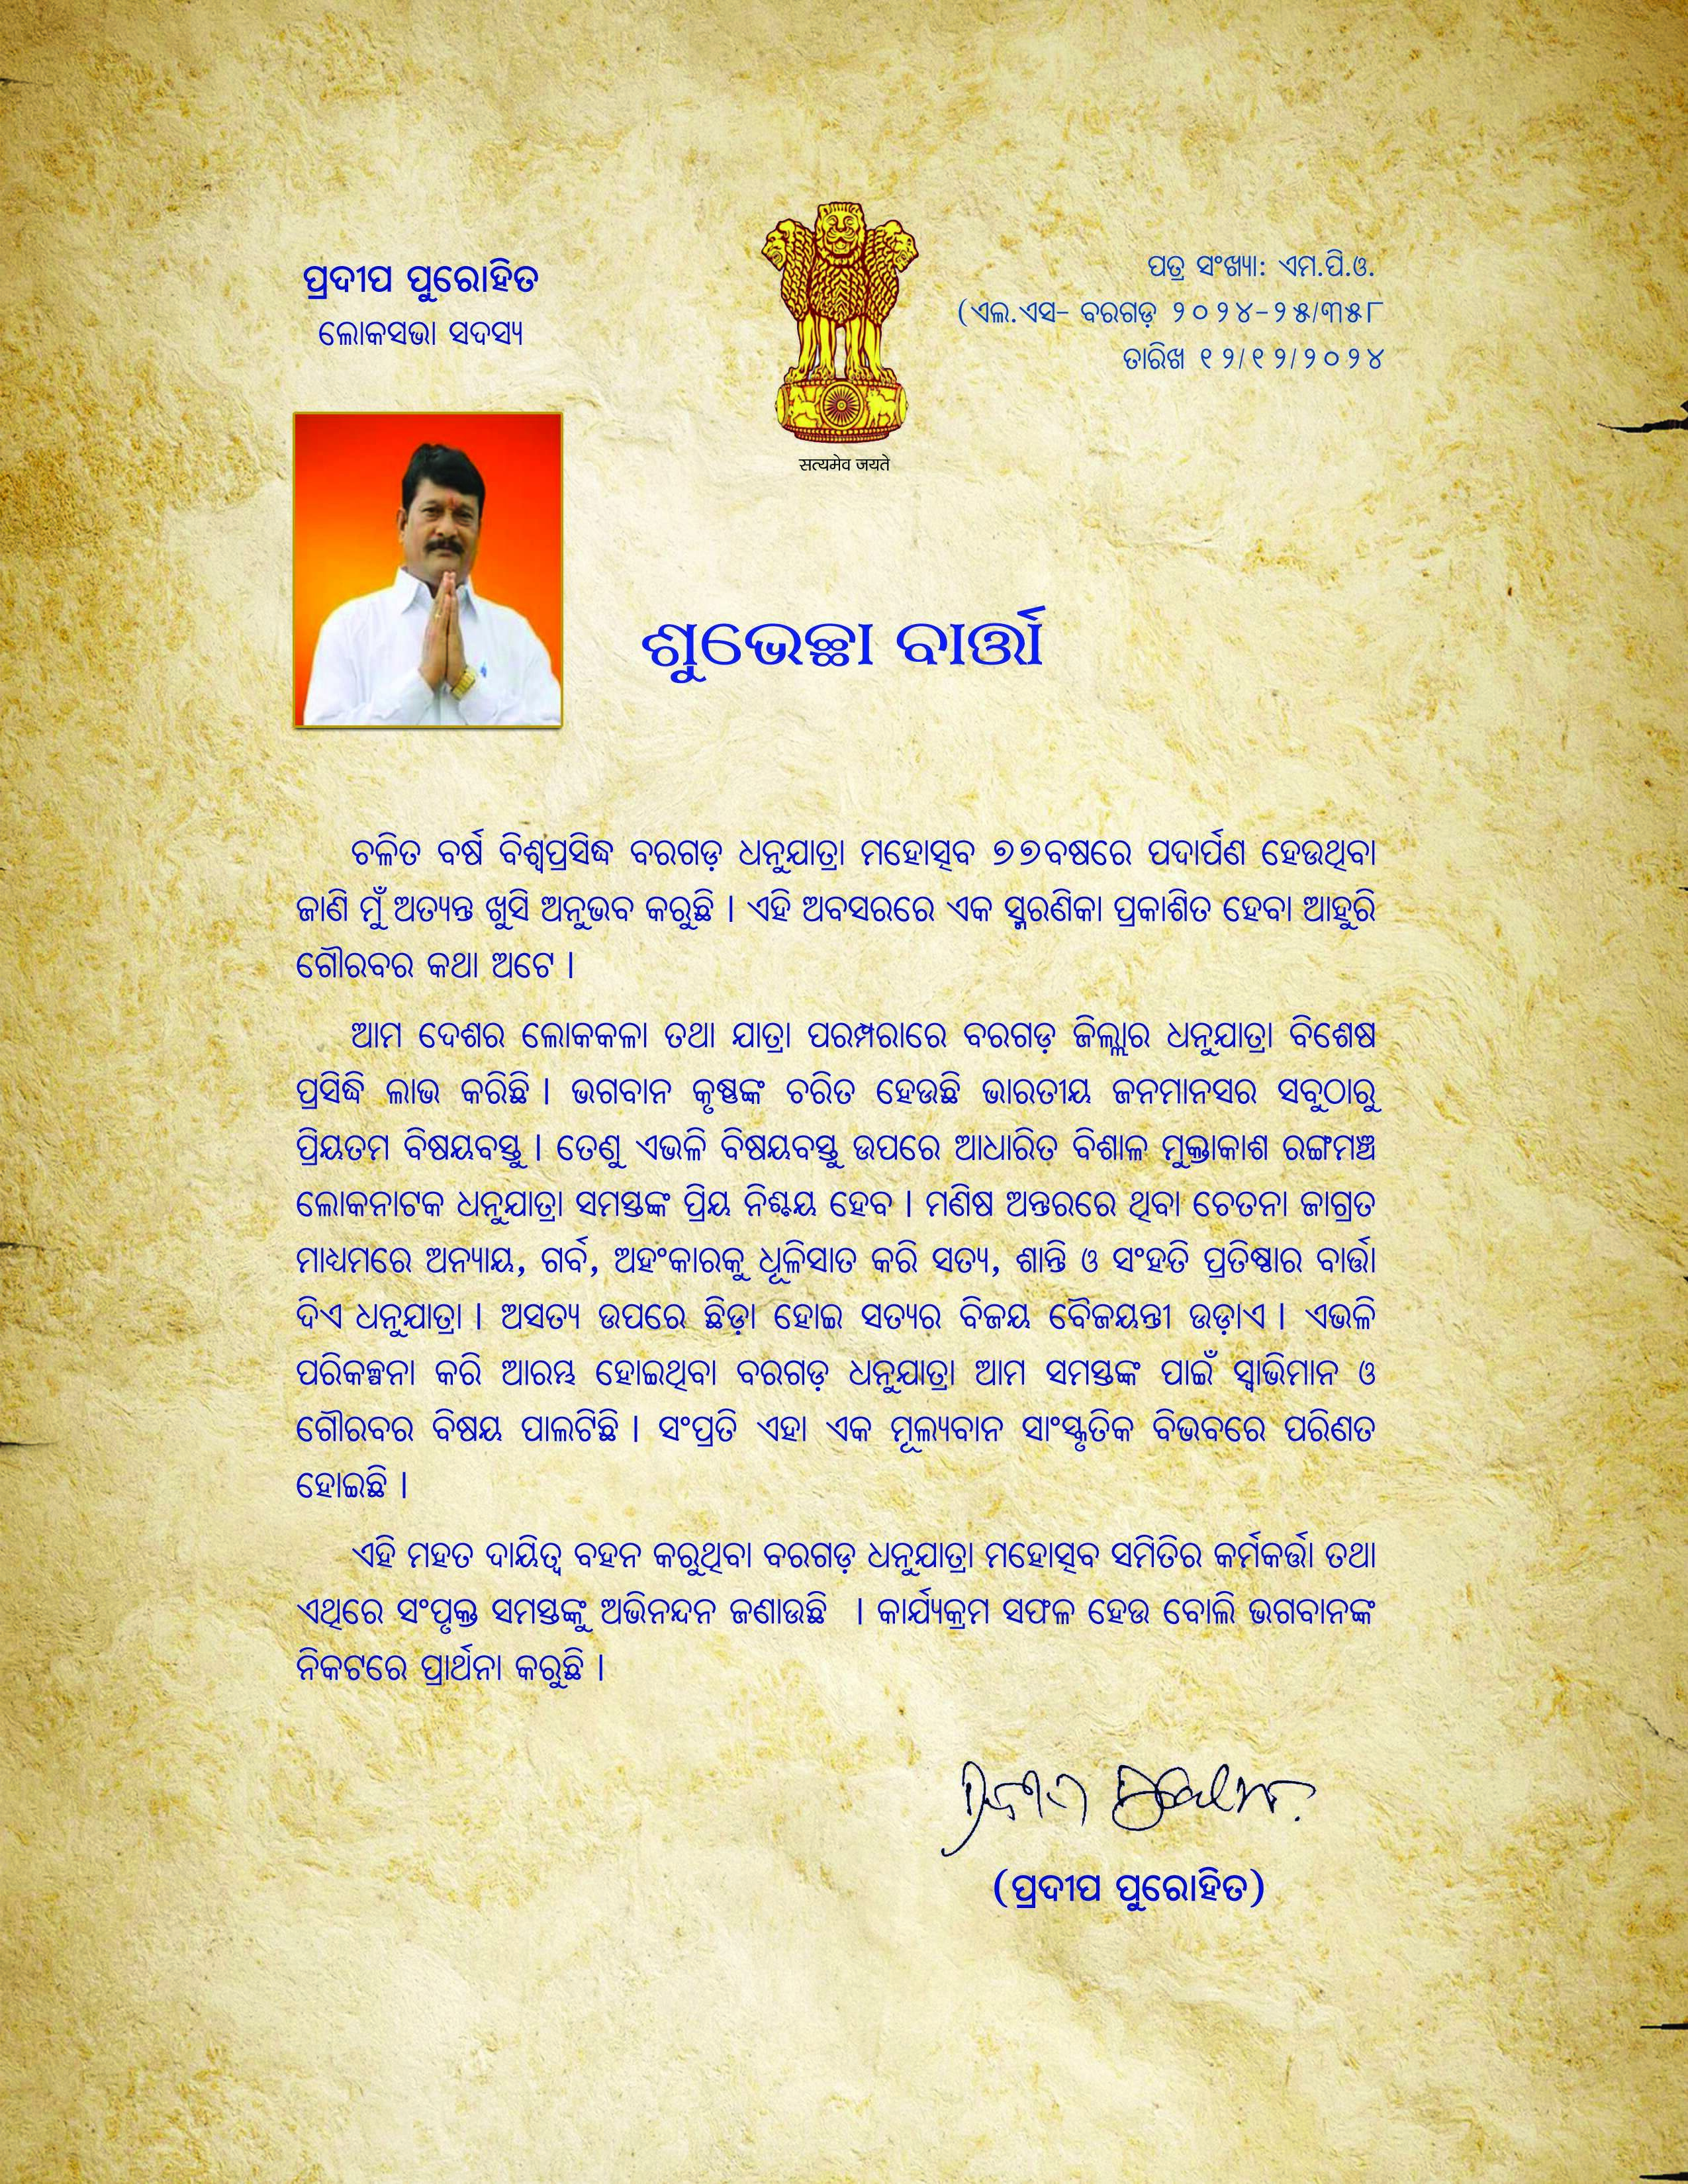 ପ୍ରଦୀପ ପୁରୋହିତ
ଲୋକସଭା ସଦସ୍ୟ
ପତ୍ର ସଂଖ୍ୟା: ଏମ.ପି.ଓ.
(ଏଲ.ଏସ- ବରଗଡ଼ ୨୦୨୪-୨୫/୩୫୮
ତାରିଖ ୧୨/୧୨/୨୦୨୪
सत्यमेव जयते
ଶୁଭେଚ୍ଛା ବାର୍ତ୍ତା
ଚଳିତ ବର୍ଷ ବିଶ୍ୱପ୍ରସିଦ୍ଧ ବରଗଡ଼ ଧନୁଯାତ୍ରା ମହୋତ୍ସବ ୭୭ବଷରେ ପଦାର୍ପଣ ହେଉଥିବା
ଜାଣି ମୁଁ ଅତ୍ୟନ୍ତ ଖୁସି ଅନୁଭବ କରୁଛି । ଏହି ଅବସରରେ ଏକ ସ୍ମରଣିକା ପ୍ରକାଶିତ ହେବା ଆହୁରି
ଗୌରବର କଥା ଅଟେ ।
ଆମ ଦେଶର ଲୋକକଳା ତଥା ଯାତ୍ରା ପରମ୍ପରାରେ ବରଗଡ଼ ଜିଲ୍ଲାର ଧନୁଯାତ୍ରା ବିଶେଷ
ପ୍ରସିଦ୍ଧି ଲାଭ କରିଛି । ଭଗବାନ କୃଷ୍ଣଙ୍କ ଚରିତ ହେଉଛି ଭାରତୀୟ ଜନମାନସର ସବୁଠାରୁ
ପ୍ରିୟତମ ବିଷୟବସ୍ତୁ । ତେଣୁ ଏଭଳି ବିଷୟବସ୍ତୁ ଉପରେ ଆଧାରିତ ବିଶାଳ ମୁକ୍ତାକାଶ ରଙ୍ଗମଞ୍ଚ
ଲୋକନାଟକ ଧନୁଯାତ୍ରା ସମସ୍ତଙ୍କ ପ୍ରିୟ ନିଶ୍ଚୟ ହେବ । ମଣିଷ ଅନ୍ତରରେ ଥିବା ଚେତନା ଜାଗ୍ରତ
ମାଧ୍ୟମରେ ଅନ୍ୟାୟ, ଗର୍ବ, ଅହଂକାରକୁ ଧୂଳିସାତ କରି ସତ୍ୟ, ଶାନ୍ତି ଓ ସଂହତି ପ୍ରତିଷ୍ଠାର ବାର୍ତ୍ତା
ଦିଏ ଧନୁଯାତ୍ରା । ଅସତ୍ୟ ଉପରେ ଛିଡ଼ା ହୋଇ ସତ୍ୟର ବିଜୟ ବୈଜୟନ୍ତୀ ଉଡ଼ାଏ । ଏଭଳି
ପରିକଳ୍ପନା କରି ଆରମ୍ଭ ହୋଇଥିବା ବରଗଡ଼ ଧନୁଯାତ୍ରା ଆମ ସମସ୍ତଙ୍କ ପାଇଁ ସ୍ୱାଭିମାନ ଓ
ଗୌରବର ବିଷୟ ପାଲଟିଛି । ସଂପ୍ରତି ଏହା ଏକ ମୂଲ୍ୟବାନ ସାଂସ୍କୃତିକ ବିଭବରେ ପରିଣତ
ହୋଇଛି ।
ଏହି ମହତ ଦାୟିତ୍ୱ ବହନ କରୁଥିବା ବରଗଡ଼ ଧନୁଯାତ୍ରା ମହୋତ୍ସବ ସମିତିର କର୍ମକର୍ତ୍ତା ତଥା
ଏଥିରେ ସଂପୃକ୍ତ ସମସ୍ତଙ୍କୁ ଅଭିନନ୍ଦନ ଜଣାଉଛି । କାର୍ଯ୍ୟକ୍ରମ ସଫଳ ହେଉ ବୋଲି ଭଗବାନଙ୍କ
ନିକଟରେ ପ୍ରାର୍ଥନା କରୁଛି ।
(ପ୍ରଦୀପ ପୁରୋହିତ)